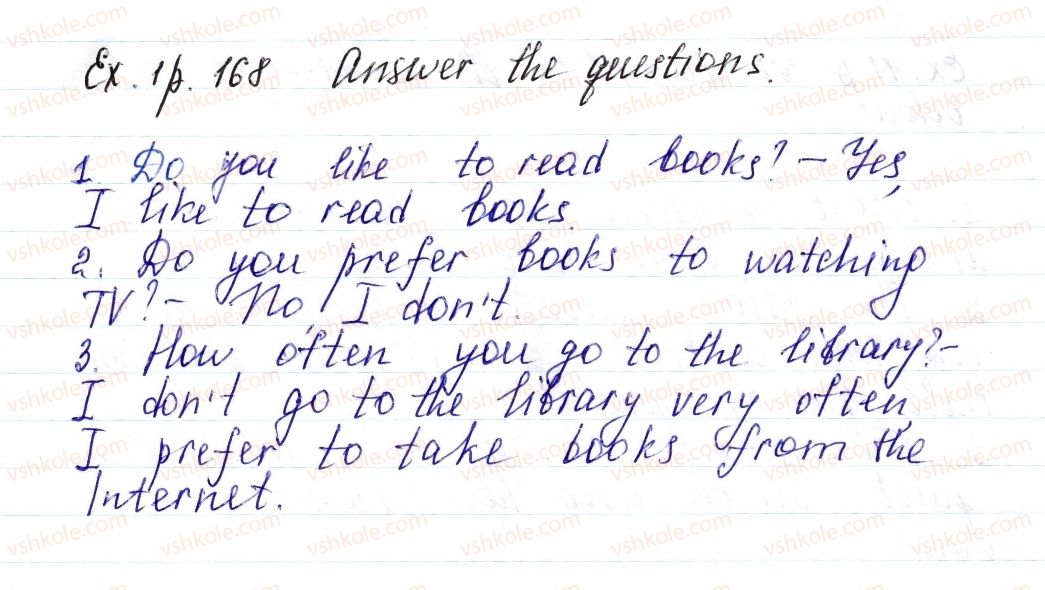 Ex. 1 p. 168 Answer the questions.
1. Do you like to read books? – Yes,
I like to read books.
2. Do you prefer books to watching
TV? – No, I don't.
3. How often you go to the library? –
I don't go to the library very often,
I prefer to take books from the
Internet.